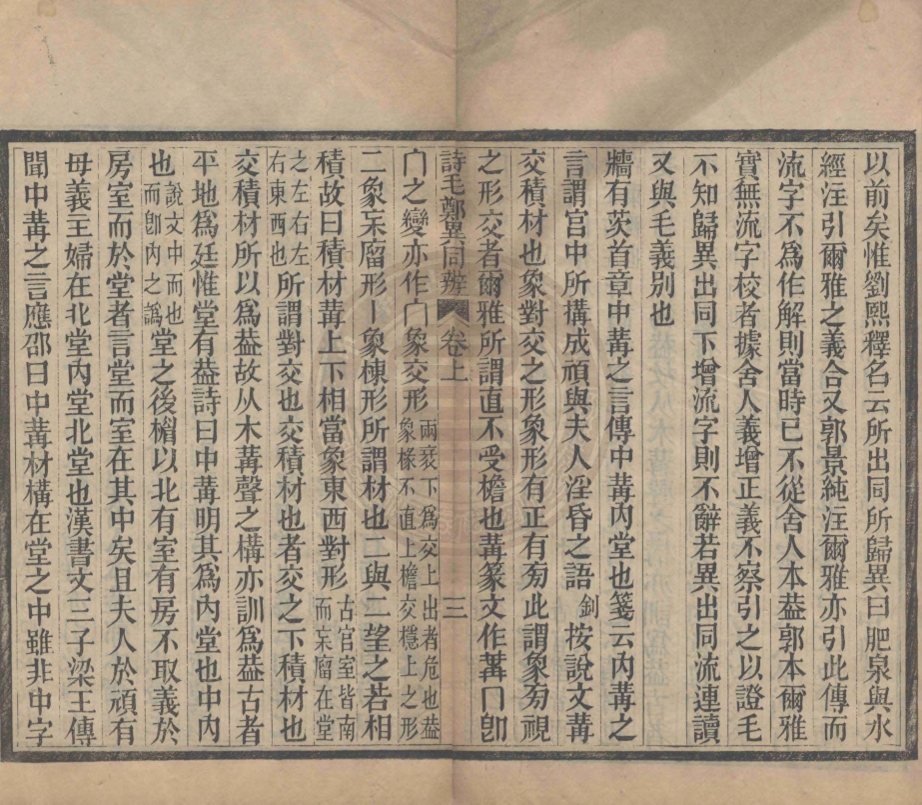 以前矣惟劉熙釋名云所出同所歸異曰肥泉與水
經注引爾雅之義合又郭景純注爾雅亦引此傳而
流字不爲作解則當時已不從舍人本葢郭本爾雅
實無流字校者據舍人義增正義不察引之以證毛
不知歸異出同下增流字則不辭若異出同流連讀
又與毛義別也
牆有茨首章中冓之言傳中冓內堂也箋云內冓之
言謂宮中所搆成頑與夫人淫昏之語 釗按說文冓
交積材也象對交之形象形有正有旁此謂象旁視
之形交者爾雅所謂直不受檐也冓篆文作冓冂卽
詩毛鄭異同辨 卷上 三
冂之變亦作冂象交形兩衺下爲交上出者危也葢象椽不直上檐交檼上之形
二象宋廇形丨象棟形所謂材也二與二望之若相
積故曰積材冓上下相當象東西對形古宮室皆南而宋廇在堂
之左右左右東西也所謂對交也交積材也者交之下積材也
交積材所以爲葢故从木冓聲之構亦訓爲葢古者
平地爲廷惟堂有葢詩曰中冓明其爲內堂也中內
也說文中而也而卽內之譌堂之後楣以北有室有房不取義於
房室而於堂者言堂而室在其中矣且夫人於頑有
母義主婦在北堂內堂北堂也漢書文三子梁王傳
聞中冓之言應邵曰中冓材構在堂之中雖非中字